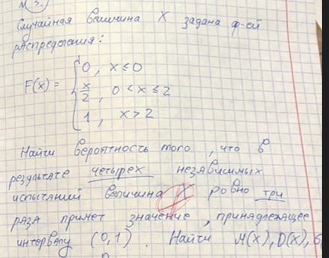 № 3.
Случайная величина X задана ф-ей
распределения:
F(x) = { 0, x ≤ 0
x/2, 0 < x ≤ 2
1, x > 2
Найти вероятность того, что в
результате четырех независимых
испытаний величина X ровно три
раза примет значение, принадлежащее
интервалу (0,1). Найти M(x), D(x), б